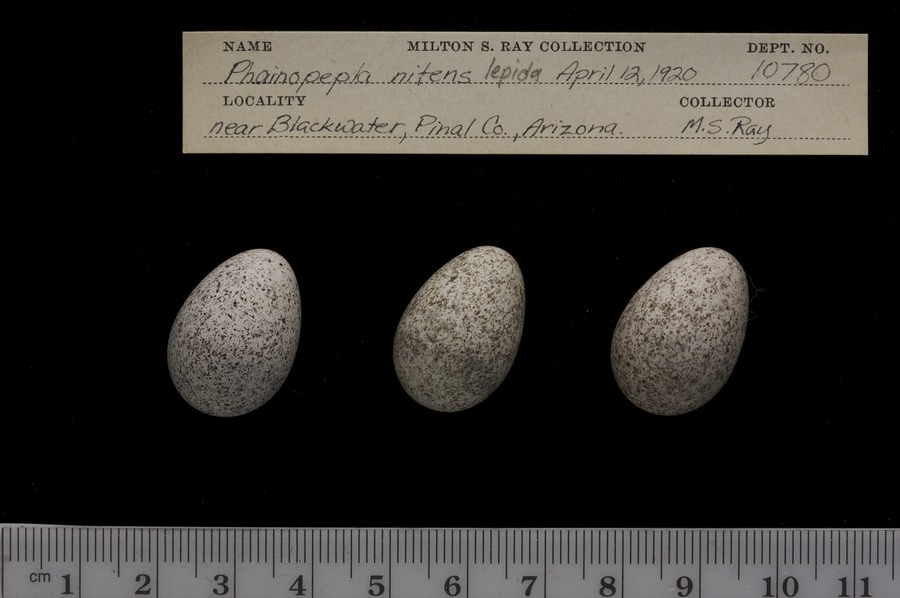 NAME MILTON S. RAY COLLECTION DEPT. NO.
Phainopepla nitens lepida April 12, 1920 10780
LOCALITY COLLECTOR
near Blackwater, Pinal Co., Arizona. M.S. Ray
cm 1 2 3 4 5 6 7 8 9 10 11